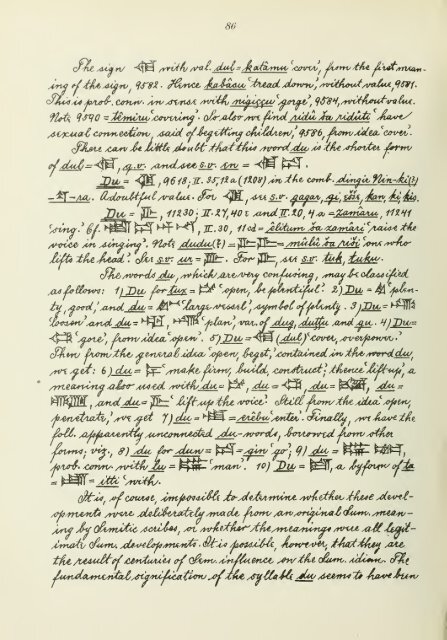 86
The sign 𒆠 with val. dul = katâmu 'cover', from the first mean-
ing of the sign, 9582. Hence kabâsu 'tread down', without value, 9581.
This is prob. conn. in sense with nigiççu 'gorge', 9584, without value.
Note 9590 = temiru 'covering'. So also we find ridû ša ridûti 'have
sexual connection, said of begetting children', 9586, from idea 'cover'.
There can be little doubt that this word du is the shorter form
of dul = , q.v. and see s.v. en =
Du = , 9618, II. 35, 12a (1208) in the comb. dingir Nin-ki(?)
-ra. A doubtful value. For , see s.v. gagar, gi, kan, ki, kis.
Du = , 11230; II. 27, 40e and II. 20, 4a = zamâru, 11241
'sing.' Cf. II. 30, 11cd = êlitum ša zamâri 'raise the
voice in singing'. Note dudu(?) = = mulû ša riši 'one who
lifts the head'. See s.v. ur = . For , see s.v. tuk, tuku.
The words du, which are very confusing, may be classified
as follows: 1) Du for tux = 'open, be plentiful'. 2) Du = 'plen-
ty, good', and du = 'large vessel', symbol of plenty. 3) Du =
'loosen' and du = 'plan', var. of dug, duttu and gu. 4) Du =
'gore', from idea 'open'. 5) Du = (dul) 'cover, overpower.'
Then from the general idea 'open, beget,' contained in the word du,
we get: 6) du = 'make firm, build, construct'; thence 'lift up', a
meaning also used with du = , du = , du = , du =
, and du = 'lift up the voice'. Still from the idea 'open,
penetrate,' we get 7) du = = erêbu 'enter'. Finally, we have the
foll. apparently unconnected du-words, borrowed from other
forms; viz., 8) du for dun = = gin 'go'; 9) du =
prob. conn. with lu = 'man'. 10) Du = , a byform of ta
= = itti 'with.
It is, of course, impossible to determine whether these devel-
opments were deliberately made from an original Sum. mean-
ing by Semitic scribes, or whether the meanings were all legit-
imate Sum. developments. It is possible, however, that they are
the result of centuries of Sem. influence on the Sum. idiom. The
fundamental signification of the syllable du seems to have been